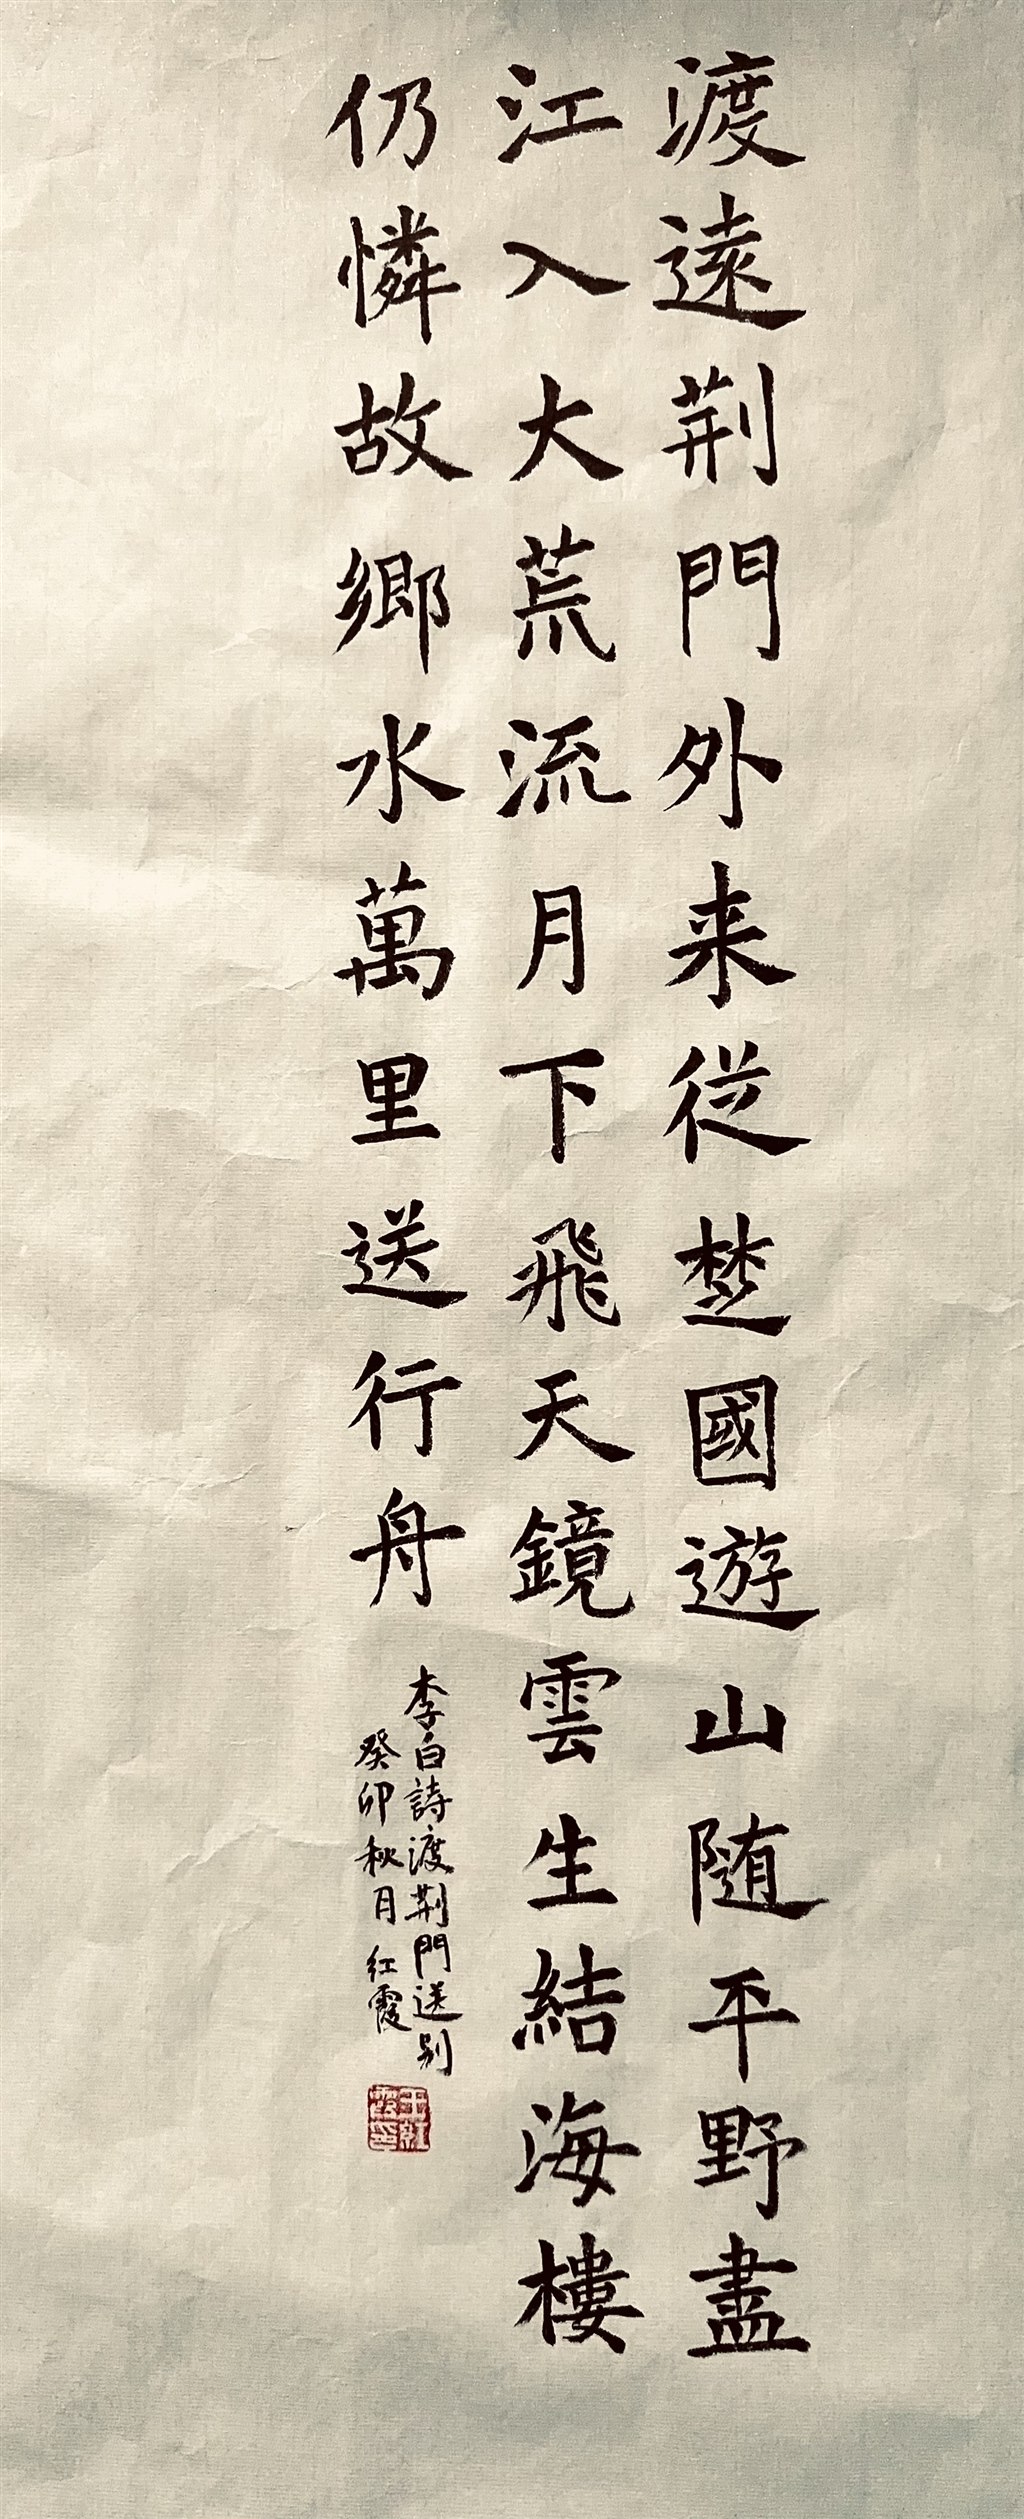 渡遠荊門外来従楚國遊山随平野盡
江入大荒流月下飛天鏡雲生結海樓
仍憐故鄉水萬里送行舟
李白詩渡荊門送别
癸卯秋月红霞
王紅霞印